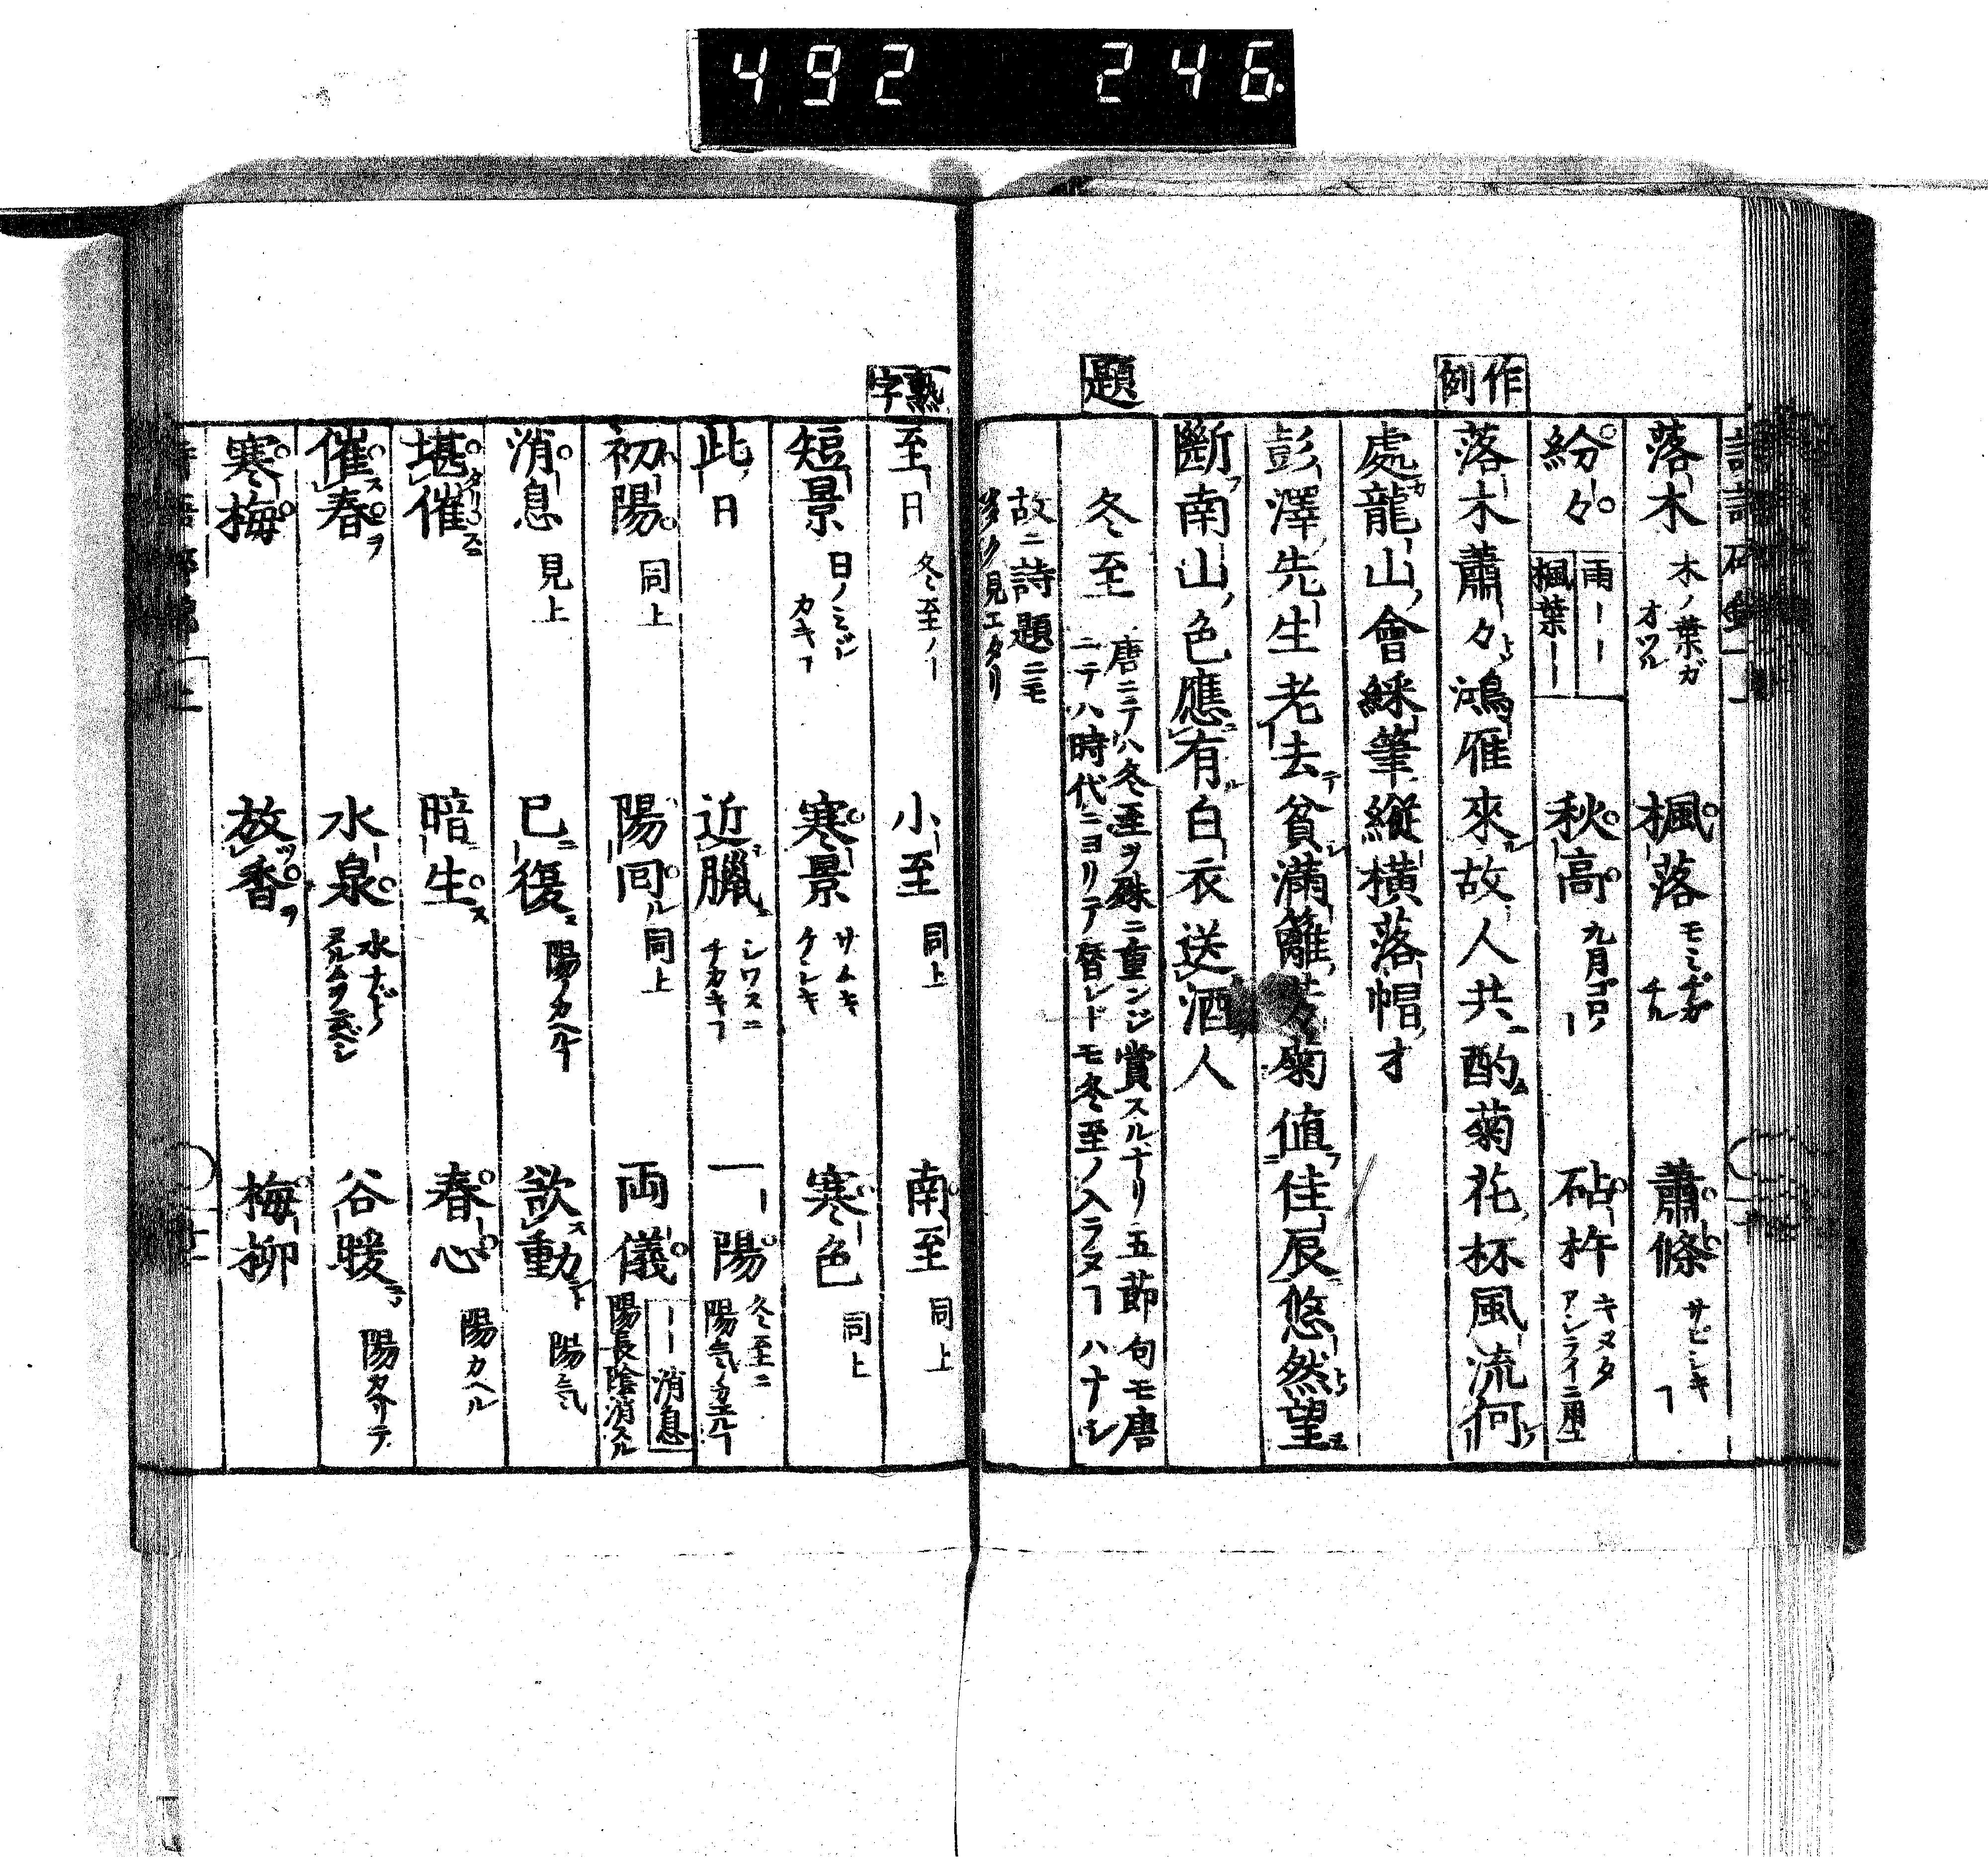 492 246
落木 木ノ葉ガオツル 楓落 モミヂガチル 蕭條 サビシキヿ
紛々 雨ーー 楓葉ー 秋高 九月ゴロノー 砧杵 キヌタ
作例
落木蕭々鴻雁來故人共酌菊花杯風流何
處龍山會綵筆縱横落帽才
彭澤先生老去貧滿籬芳菊値佳辰悠然望
斷南山色應有白衣送酒人
題
冬至 唐ニテハ冬至ヲ殊ニ重ンジ賞スルナリ五節句モ唐
ニテハ時代ニヨリテ替レドモ冬至ノ入ラヌヿハナシ
故ニ詩題ニモ
多ク見エタリ
熟字
至日 冬至ノー 小至 同上 南至 同上
短景 日ノミジカキヿ 寒景 サムキケシキ 寒色 同上
此日 近臘 シワスニチカキヿ 一陽 冬至ニ陽気ノ
初陽 同上 陽囘 同上 両儀 ーー消息 陽長陰消スル
消息 見上 已復 陽ノカヘルヿ 欲動 陽気
堪催 暗生 春心 陽カヘル
催春 水泉 水ナドノ 谷暖 陽カ
寒梅 放香 梅柳